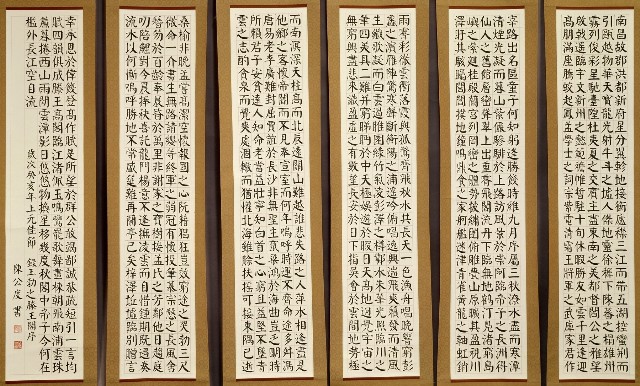 南昌故郡洪都新府星分翼軫地接衡廬襟三江而帶五湖控蠻荊而
引甌越物華天寶龍光射牛斗之墟人傑地靈徐孺下陳蕃之榻雄州
霧列俊彩星馳臺隍枕夷夏之交賓主盡東南之美都督閻公之雅望
棨戟遙臨宇文新州之懿範襜帷暫駐十旬休暇勝友如雲千里逢迎
高朋滿座騰蛟起鳳孟學士之詞宗紫電清霜王將軍之武庫家君作
宰路出名區童子何知躬逢勝餞時維九月序屬三秋潦水盡而寒潭
清煙光凝而暮山紫儼驂騑於上路訪風景於崇阿臨帝子之長洲得
仙人之舊館層巒聳翠上出重霄飛閣流丹下臨無地鶴汀鳧渚窮島
嶼之縈迴桂殿蘭宮列岡巒之體勢披繡闥俯雕甍山原曠其盈視川
澤盱其駭矚閭閻撲地鐘鳴鼎食之家舸艦迷津青雀黃龍之軸虹銷
雨霽彩徹雲衢落霞與孤鶩齊飛秋水共長天一色漁舟唱晚響窮彭
蠡之濱雁陣驚寒聲斷衡陽之浦遙吟俯暢逸興遄飛爽籟發而清風
生纖歌凝而白雲遏睢園綠竹氣凌彭澤之樽鄴水朱華光照臨川之
筆四美具二難并窮睇眄於中天極娛遊於暇日天高地迥覺宇宙之
無窮興盡悲來識盈虛之有數望長安於日下指吳會於雲間地勢極
而南溟深天柱高而北辰遠關山難越誰悲失路之人萍水相逢盡是
他鄉之客懷帝閽而不見奉宣室而何年嗚呼時運不齊命途多舛馮
唐易老李廣難封屈賈誼於長沙非無聖主竄梁鴻於海曲豈乏明時
所賴君子安貧達人知命老當益壯寧知白首之心窮且益堅不墜青
雲之志酌貪泉而覺爽處涸轍而猶懽北海雖賒扶搖可接東隅已逝
桑榆非晚孟嘗高潔空懷報國之心阮籍猖狂豈效窮途之哭勃三尺
微命一介書生無路請纓等終軍之弱冠有懷投筆慕宗愨之長風舍
簪笏於百齡奉晨昏於萬里非謝家之寶樹接孟氏之芳鄰他日趨庭
叨陪鯉對今晨捧袂喜託龍門楊意不逢撫凌雲而自惜鍾期既遇奏
流水以何慚嗚呼勝地不常盛筵難再蘭亭已矣梓澤丘墟臨別贈言
幸承恩於偉餞登高作賦是所望於群公敢竭鄙誠恭疏短引一言均
賦四韻俱成滕王高閣臨江渚佩玉鳴鸞罷歌舞畫棟朝飛南浦雲珠
簾暮捲西山雨閒雲潭影日悠悠物換星移幾度秋閣中帝子今何在
檻外長江空自流
歲次癸亥年上元佳節 錄王勃之滕王閣序
陳公度書